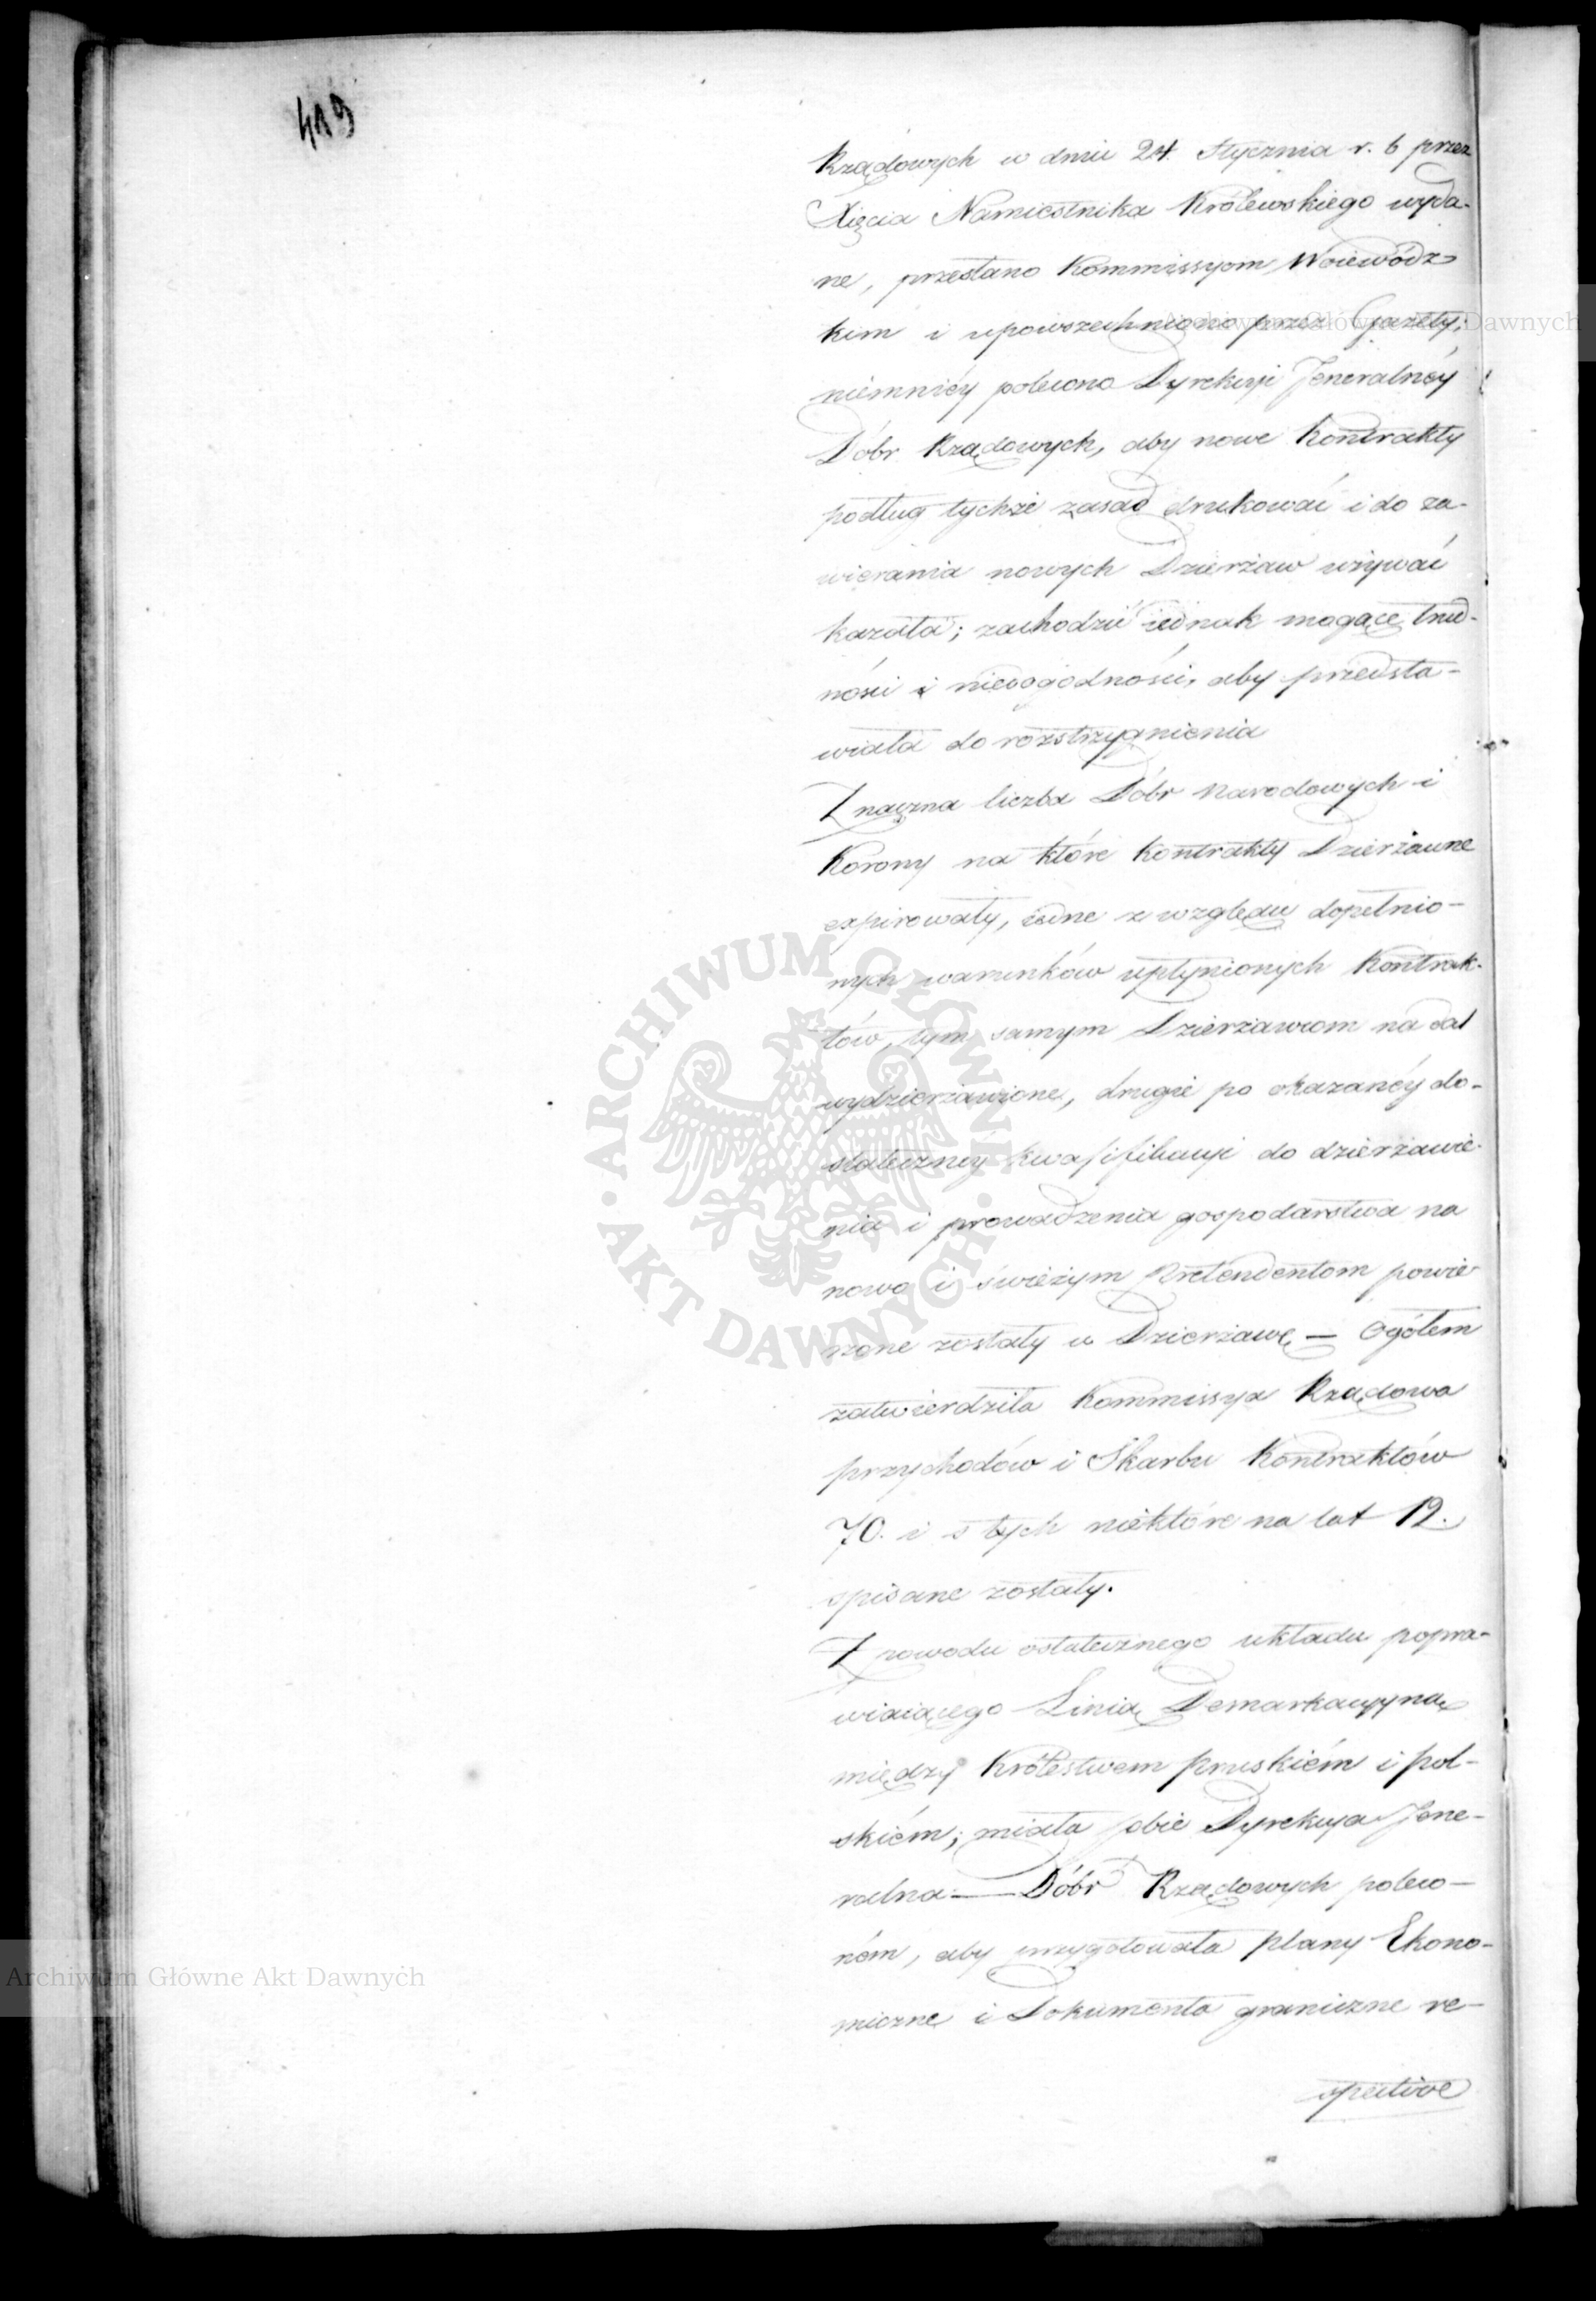 419
Rządowych w dniu 24. Stycznia r. b przez
Xięcia Namiestnika Królewskiego wyda-
ne, przesłano Kommissyom Woiewódz-
kim i upowszechniono przez Gazety;
niemniéy polecono Dyrekcyi Jeneralnéy
Dóbr Rządowych, aby nowe Kontrakty
podług tychże zasad drukować i do za-
wierania nowych Dzierżaw używać
kazała; zachodzić iednak mogące trud-
ności i niedogodności, aby przedsta-
wiała do rozstrzygnienia
Znaczna liczba Dóbr Narodowych i
Korony na które Kontrakty Dzierżawne
expirowały, iedne z względu dopełnio-
nych warunków upłynionych Kontrak-
tów, tym samym Dzierżawcom na dal
wydzierżawione, drugie po okazanéy do-
stateczney kwalifikacyi do dzierżawie-
nia i prowadzenia gospodarstwa na
nowo i świeżym Pretendentom powie-
rzone zostały w Dzierżawę — Ogółem
zatwierdziła Kommissya Rządowa
przychodów i Skarbu Kontraktów
70. i z tych niektóre na lat 12.
spisane zostały.
Z powodu ostatecznego układu popra-
wiaiącego Linią Demarkacyyną
między Królestwem pruskiém i pol-
skiém; miała sobie Dyrekcya Jene-
ralna — Dóbr Rządowych poleco-
ném, aby przygotowała plany Ekono-
miczne i Dokumenta graniczne re-
spective
Archiwum Główne Akt Dawnych
Archiwum Główne Akt Dawnych
ARCHIWUM GŁÓWNE · AKT DAWNYCH ·